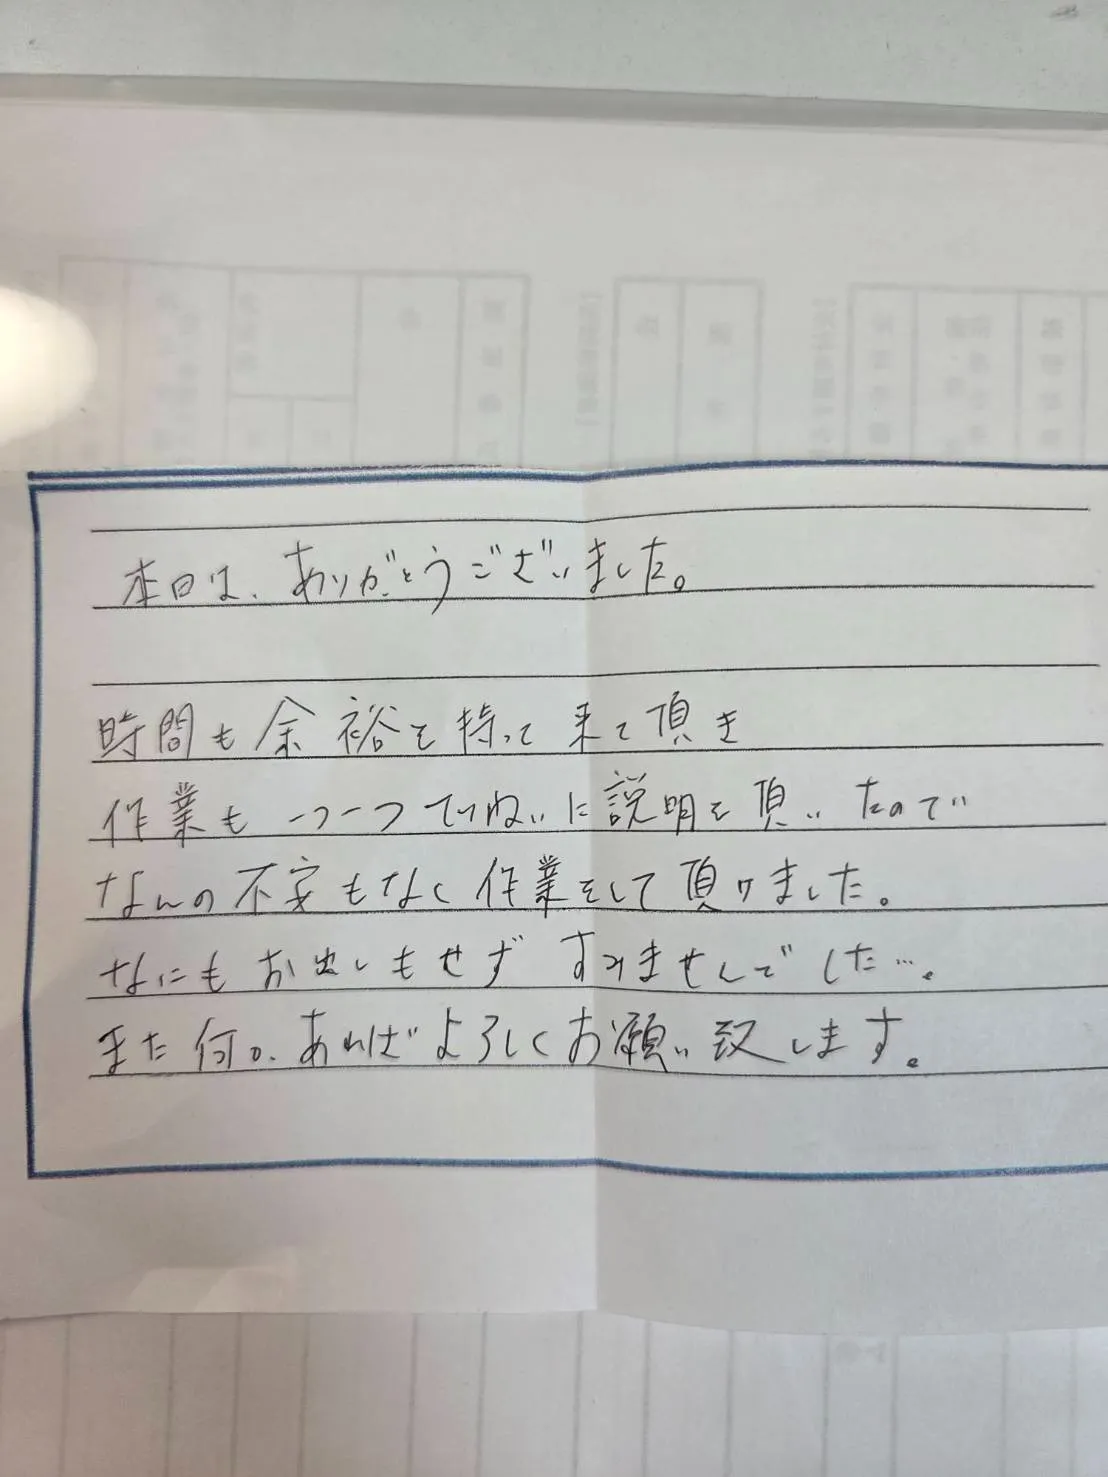 本日は、ありがとうございました。
時間も余裕を持って来て頂き
作業も一つ一つていねいに説明を頂いたので
なんの不安もなく作業をして頂けました。
なにもお出しもせず すみませんでした…。
また何かあればよろしくお願い致します。